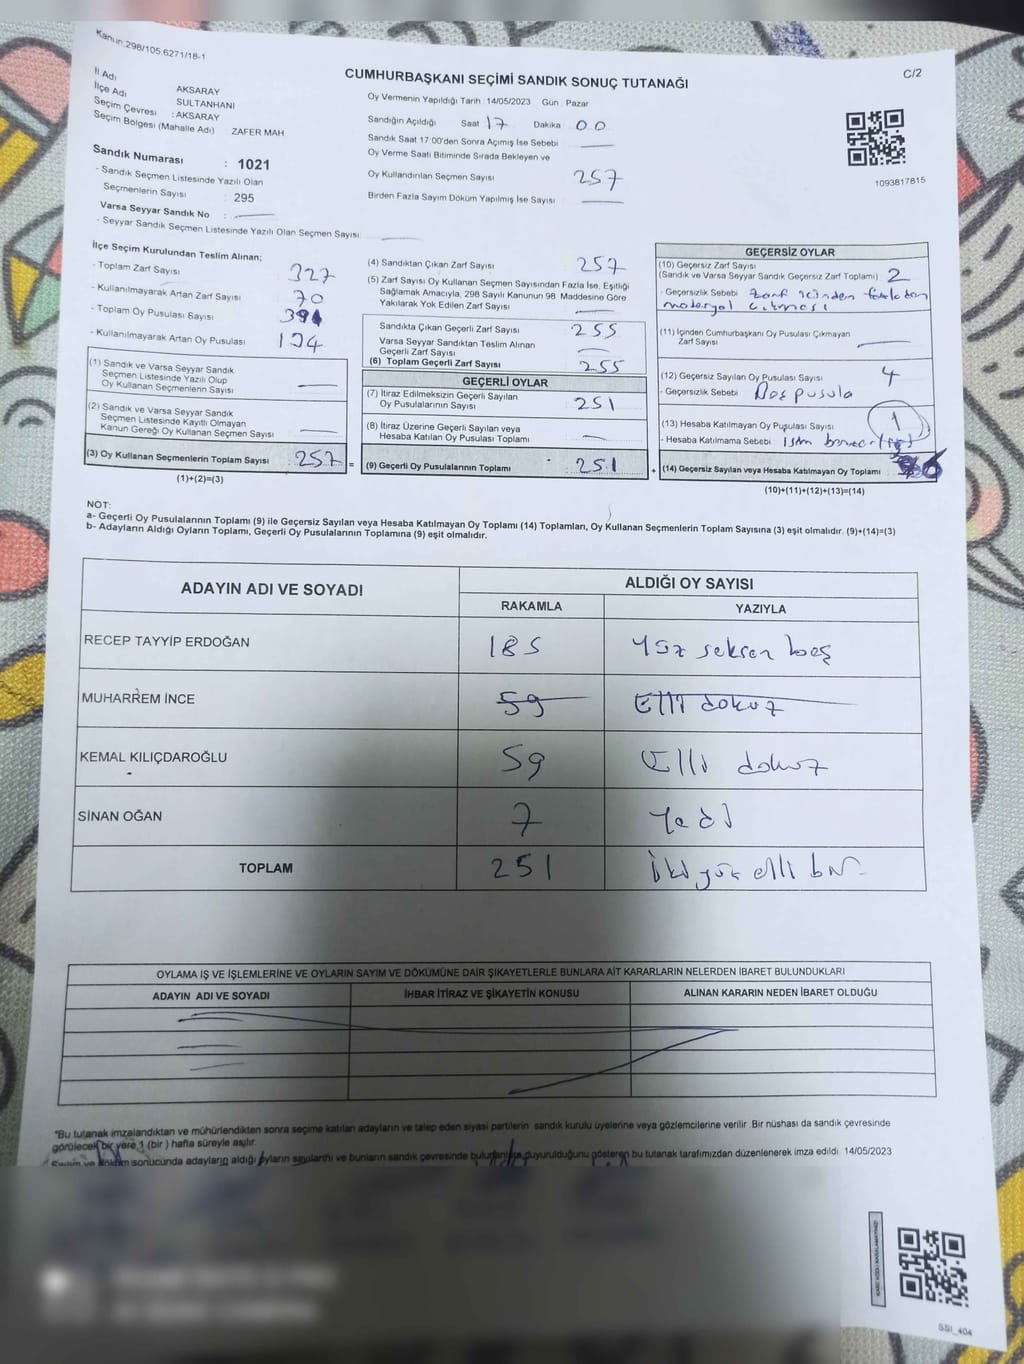 Kanun:298/105.6271/18-1
CUMHURBAŞKANI SEÇİMİ SANDIK SONUÇ TUTANAĞI
C/2
İl Adı AKSARAY
İlçe Adı SULTANHANI
Seçim Çevresi : AKSARAY
Seçim Bölgesi (Mahalle Adı) ZAFER MAH
Sandık Numarası : 1021
- Sandık Seçmen Listesinde Yazılı Olan
Seçmenlerin Sayısı : 295
Varsa Seyyar Sandık No :
- Seyyar Sandık Seçmen Listesinde Yazılı Olan Seçmen Sayısı:
Oy Vermenin Yapıldığı Tarih :14/05/2023 Gün : Pazar
Sandığın Açıldığı Saat 17 Dakika 00
Sandık Saat 17 00'den Sonra Açımış İse Sebebi
Oy Verme Saati Bitiminde Sırada Bekleyen ve
Oy Kullandırılan Seçmen Sayısı 257
Birden Fazla Sayım Döküm Yapılmış İse Sayısı
1093817815
İlçe Seçim Kurulundan Teslim Alınan;
- Toplam Zarf Sayısı 327
- Kullanılmayarak Artan Zarf Sayısı 70
- Toplam Oy Pusulası Sayısı
- Kullanılmayarak Artan Oy Pusulası
(1) Sandık ve Varsa Seyyar Sandık
Seçmen Listesinde Yazılı Olup
Oy Kullanan Seçmenlerin Sayısı
(2) Sandık ve Varsa Seyyar Sandık
Seçmen Listesinde Kayıtlı Olmayan
Kanun Gereği Oy Kullanan Seçmen Sayısı
(3) Oy Kullanan Seçmenlerin Toplam Sayısı : 257 =
(1)+(2)=(3)
(4) Sandıktan Çıkan Zarf Sayısı 257
(5) Zarf Sayısı Oy Kullanan Seçmen Sayısından Fazla İse, Eşitliği
Sağlamak Amacıyla, 298 Sayılı Kanunun 98. Maddesine Göre
Yakılarak Yok Edilen Zarf Sayısı
Sandıkta Çıkan Geçerli Zarf Sayısı 255
Varsa Seyyar Sandıktan Teslim Alınan
Geçerli Zarf Sayısı
(6) Toplam Geçerli Zarf Sayısı 255
GEÇERLİ OYLAR
(7) İtiraz Edilmeksizin Geçerli Sayılan
Oy Pusulalarının Sayısı 251
(8) İtiraz Üzerine Geçerli Sayılan veya
Hesaba Katılan Oy Pusulası Toplamı
(9) Geçerli Oy Pusulalarının Toplamı 251 +
GEÇERSİZ OYLAR
(10) Geçersiz Zarf Sayısı
(Sandık ve Varsa Seyyar Sandık Geçersiz Zarf Toplamı) 2
- Geçersizlik Sebebi zarf içinden
(11) İçinden Cumhurbaşkanı Oy Pusulası Çıkmayan
Zarf Sayısı
(12) Geçersiz Sayılan Oy Pusulası Sayısı 4
- Geçersizlik Sebebi Boş pusula
(13) Hesaba Katılmayan Oy Pupulası Sayısı 1
- Hesaba Katılmama Sebebi :
(14) Geçersiz Sayılan veya Hesaba Katılmayan Oy Toplamı 6
(10)+(11)+(12)+(13)=(14)
NOT:
a- Geçerli Oy Pusulalarının Toplamı (9) ile Geçersiz Sayılan veya Hesaba Katılmayan Oy Toplamı (14) Toplamları, Oy Kullanan Seçmenlerin Toplam Sayısına (3) eşit olmalıdır. (9)+(14)=(3)
b- Adayların Aldığı Oyların Toplamı, Geçerli Oy Pusulalarının Toplamına (9) eşit olmalıdır.
ADAYIN ADI VE SOYADI ALDIĞI OY SAYISI
RAKAMLA YAZIYLA
RECEP TAYYİP ERDOĞAN 185 Yüz seksen beş
MUHARREM İNCE 59 Elli dokuz
KEMAL KILIÇDAROĞLU 59 Elli dokuz
SİNAN OĞAN 7 Yedi
TOPLAM 251 İki yüz elli bir
OYLAMA İŞ VE İŞLEMLERİNE VE OYLARIN SAYIM VE DÖKÜMÜNE DAİR ŞİKAYETLERLE BUNLARA AİT KARARLARIN NELERDEN İBARET BULUNDUKLARI
ADAYIN ADI VE SOYADI İHBAR İTİRAZ VE ŞİKAYETİN KONUSU ALINAN KARARIN NEDEN İBARET OLDUĞU
*Bu tutanak imzalandıktan ve mühürlendikten sonra seçime katılan adayların ve talep eden siyasi partilerin sandık kurulu üyelerine veya gözlemcilerine verilir. Bir nüshası da sandık çevresinde
görülecek bir yere 1 (bir ) hafta süreyle asılır.
Sayım ve döküm sonucunda adayların aldığı oyların sayılarını ve bunların sandık çevresinde bulunanlara duyurulduğunu gösteren bu tutanak tarafımızdan düzenlenerek imza edildi. 14/05/2023
SSI_404